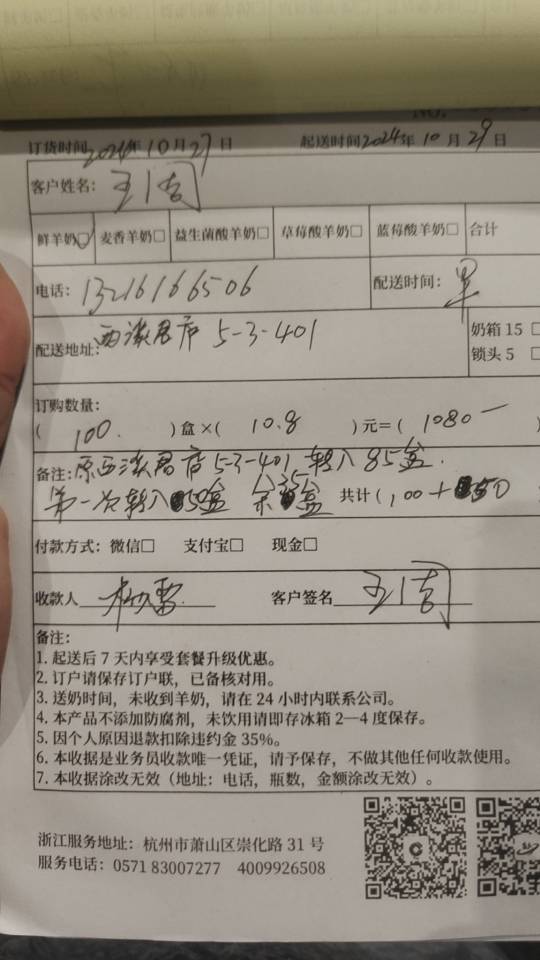 订货时间2024年10月27日 起送时间2024年10月29日
客户姓名:
鲜羊奶☑ 麦香羊奶□ 益生菌酸羊奶□ 草莓酸羊奶□ 蓝莓酸羊奶□ 合计
电话: 13216166506 配送时间: 早
配送地址: 西溪 5-3-401
奶箱 15 □
锁头 5 □
订购数量:
( 100. )盒×( 10.8 )元=( 1080一 )
备注: 原西溪 5-3-401 转入 85盒.
第一次转入 50盒 余35盒 共计(100+50
付款方式: 微信□ 支付宝□ 现金□
收款人 客户签名
备注:
1. 起送后 7 天内享受套餐升级优惠。
2. 订户请保存订户联，已备核对用。
3. 送奶时间，未收到羊奶，请在 24 小时内联系公司。
4. 本产品不添加防腐剂，未饮用请即存冰箱 2—4 度保存。
5. 因个人原因退款扣除违约金 35%。
6. 本收据是业务员收款唯一凭证，请予保存，不做其他任何收款使用。
7. 本收据涂改无效（地址: 电话，瓶数，金额涂改无效）。
浙江服务地址: 杭州市萧山区崇化路 31 号
服务电话: 0571 83007277 4009926508